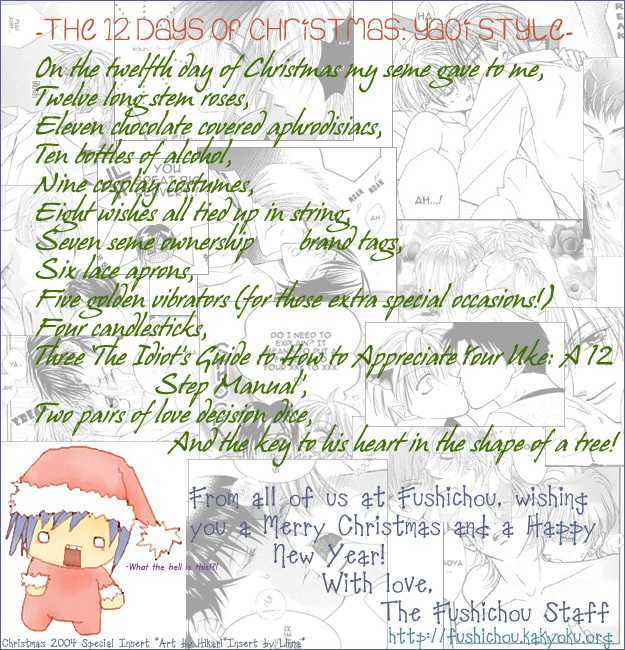 -THE 12 DAYS OF CHRISTMAS: YAOI STYLE-
On the twelfth day of Christmas my seme gave to me,
Twelve long stem roses,
Eleven chocolate covered aphrodisiacs,
Ten bottles of alcohol,
Nine cosplay costumes,
Eight wishes all tied up in string,
Seven seme ownership brand tags,
Six lace aprons,
Five golden vibrators (for those extra special occasions!)
Four candlesticks,
Three 'The Idiot's Guide to How to Appreciate Your Uke: A 12
Step Manual',
Two pairs of love decision dice,
And the key to his heart in the shape of a tree!
From all of us at Fushichou, wishing
you a Merry Christmas and a Happy
New Year!
With love,
The Fushichou Staff
http://fushichou.kakyoku.org
-What the hell is this?!!
Christmas 2004 Special Insert *Art by Hikari*Insert by
HA!
AH...!
AH
YOU
GREAT BIG
DO I NEED TO
EXPLAIN? IT
YOUR XX TO XXX